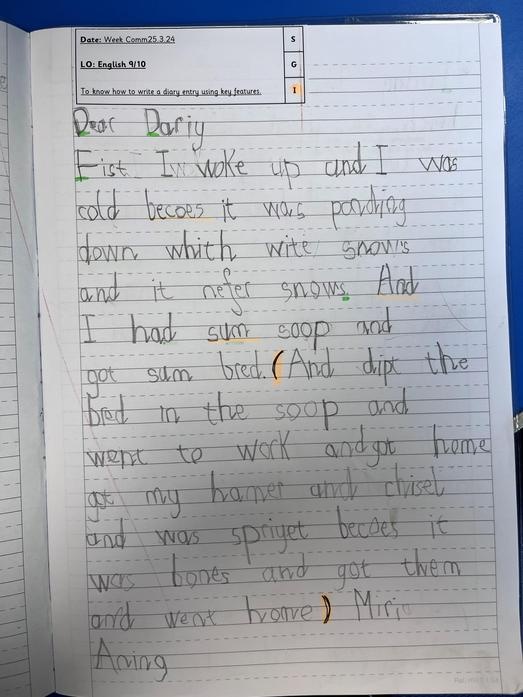 Date: Week Comm25.3.24
S
LO: English 9/10
G
To know how to write a diary entry using key features.
I
Dear Dariy
Fist Iw woke up and I was
cold becoes it was pondring
down which wite snows
and it nefer snows. And
I had sum soop and
got sum bred. (And dipt the
bred in the soop and
went to work and got home
got my hamer and chisel
and was spriget becoes it
was bones and got them
and went home) Miriy
Aning